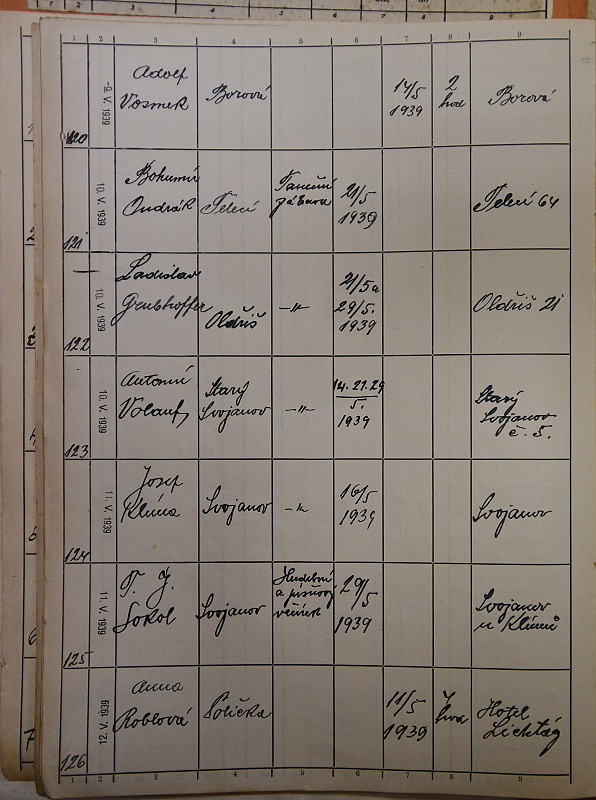 1 2 3 4 5 6 7 8 9
120 -9. V. 1939 Adolf Vosmek Borová 14/5 1939 2 hod Borová
121 10. V. 1939 Bohumír Ondrák Telecí Taneční zábava 21/5 1939 Telecí 64
122 10. V. 1939 Ladislav Grubhoffer Oldřiš -"- 21/5 a 29/5. 1939 Oldřiš 21
123 10. V. 1939 Antonín Starý Svojanov -"- 14. 21. 29 5. 1939 Starý Svojanov č. 5.
124 11. V. 1939 Josef Klíma Svojanov -"- 16/5 1939 Svojanov
125 11. V. 1939 T. J. Sokol Svojanov Hudební a písňový věneček 29/5 1939 Svojanov u Klímů
126 12. V. 1939 Anna Roblová Polička 11/5 1939 hod Hotel
1 2 3 4 5 6 7 8 9